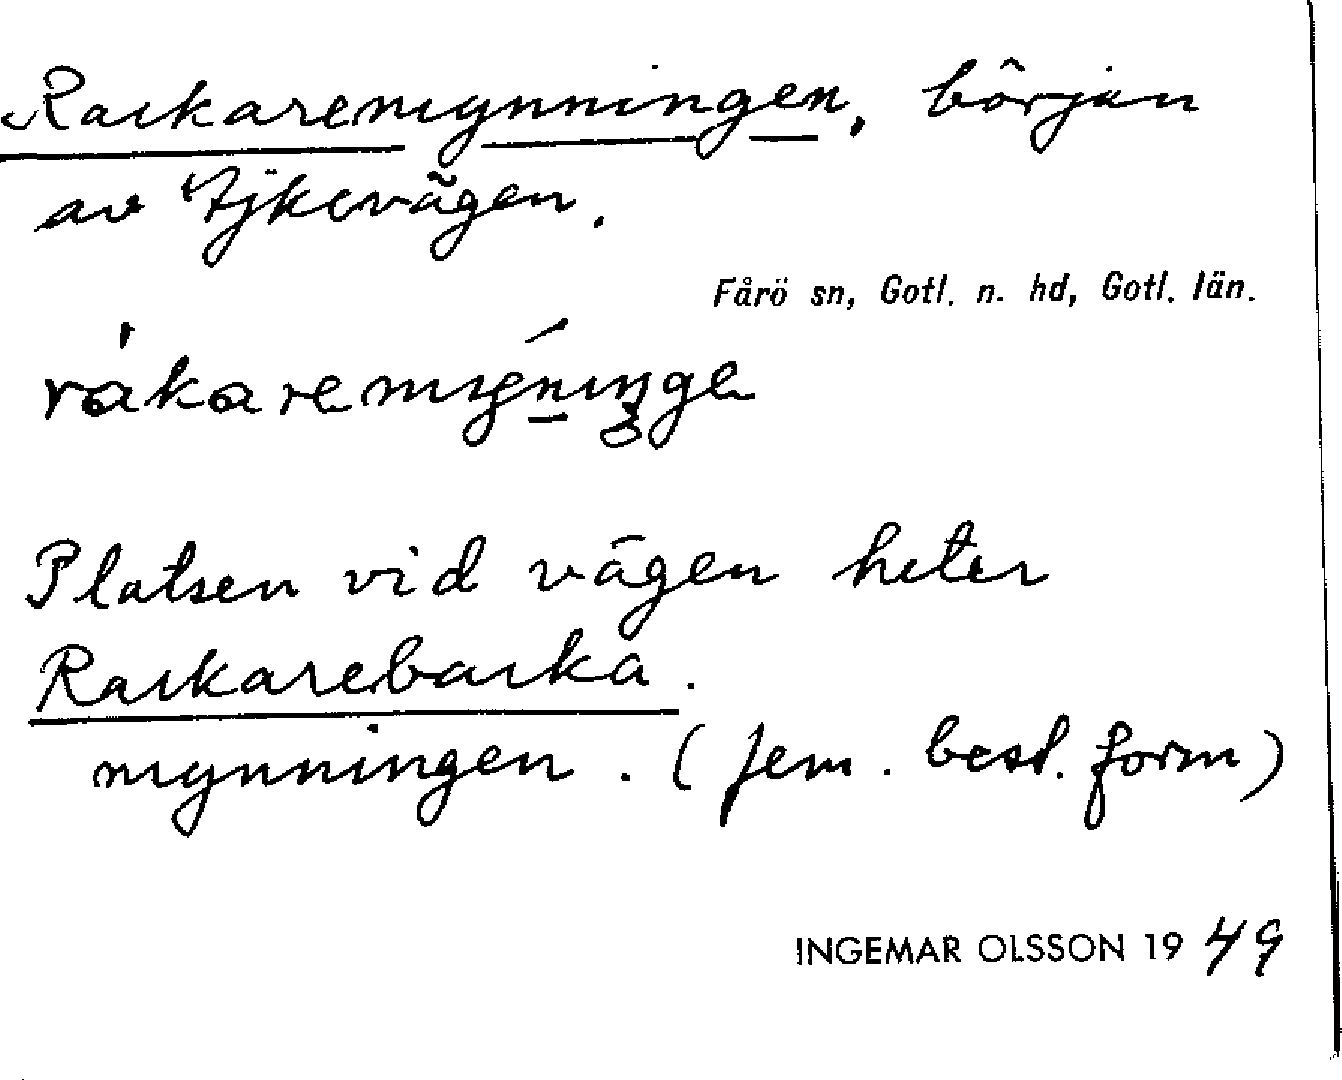 Rackaremynningen, början
av Ajkevägen.
Fårö sn, Gotl. n. hd, Gotl. län.
råkaremyninge
Platsen vid vägen heter
Rackarebacka.
mynningen. (fem. best. form)
INGEMAR OLSSON 1949